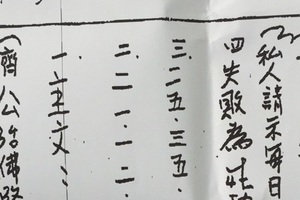 （私人請示每日
四失敗為
三.一五.三五.
二.二一.一二.
一.主文：
（濟公活佛降